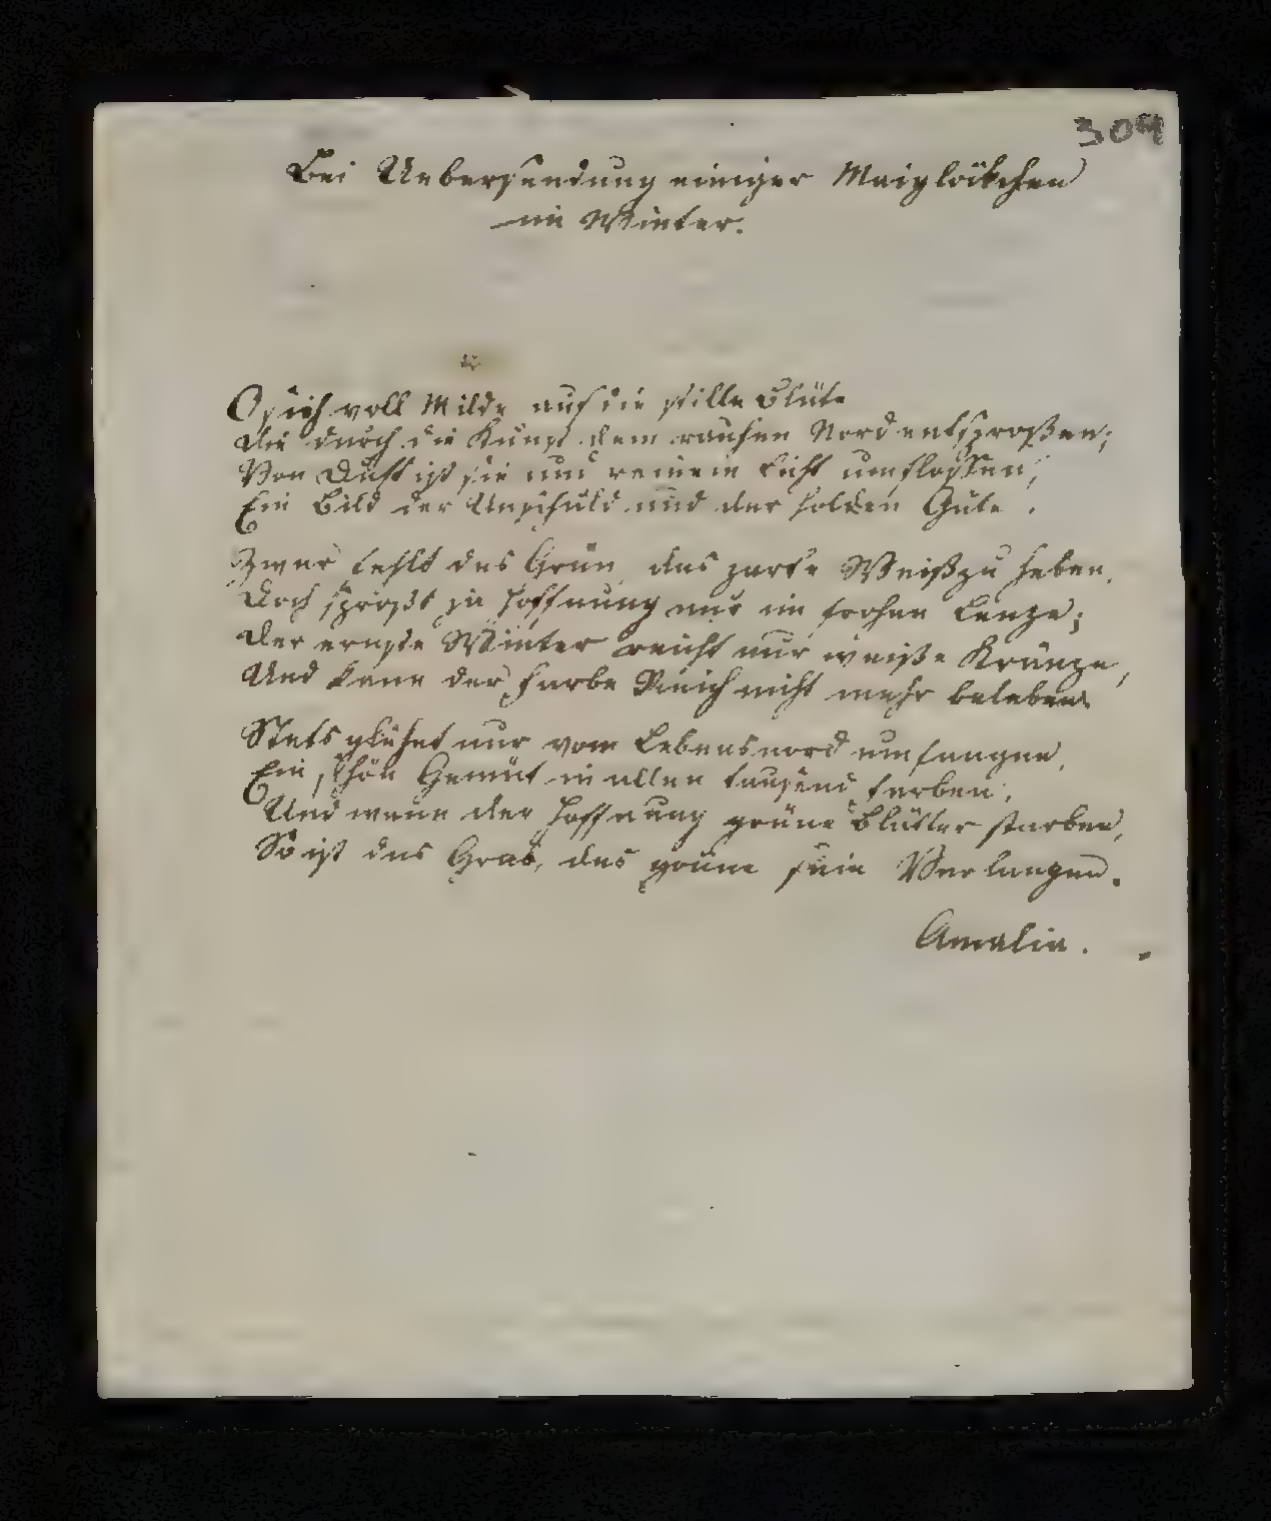 304
Bei Uebersendung einiger Maiglökchen
im Winter.
O sieh voll Milde auf die stille Blüte
die durch die Kunst dem rauhen Nord entsproßen;
Von Duft ist sie und reinem Licht umflossen,
Ein Bild der Unschuld und der holden Güte.
Zwar fehlt das Grün das zarte Weiß zu heben,
Doch sproßt ja Hoffnung nur im frohen Lenze;
Der ernste Winter reicht nur weiße Kränze,
Und kann der Farbe Reich nicht mehr beleben
Stets glühet nur vom Lebensnord umfangen,
Ein schön Gemüt in allen tausend Farben,
Und wenn der Hoffnung grüne Blätter starben,
So ist das Grab, das grüne sein Verlangen.
Amalia.